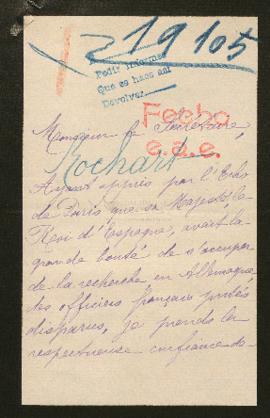 219105
Pedir informes
Que se hace así
Devolver
Fecho
e.a.e.
Monsieur le Secrétaire
Rochart
Ayant appris par l'Echo
de Paris que sa Majesté le
Roi d'Espagne, avait la
grande bonté de s'occuper
de la recherche en Allemagne
des officiers français portés
disparus, je prends la
respectueuse confiance de